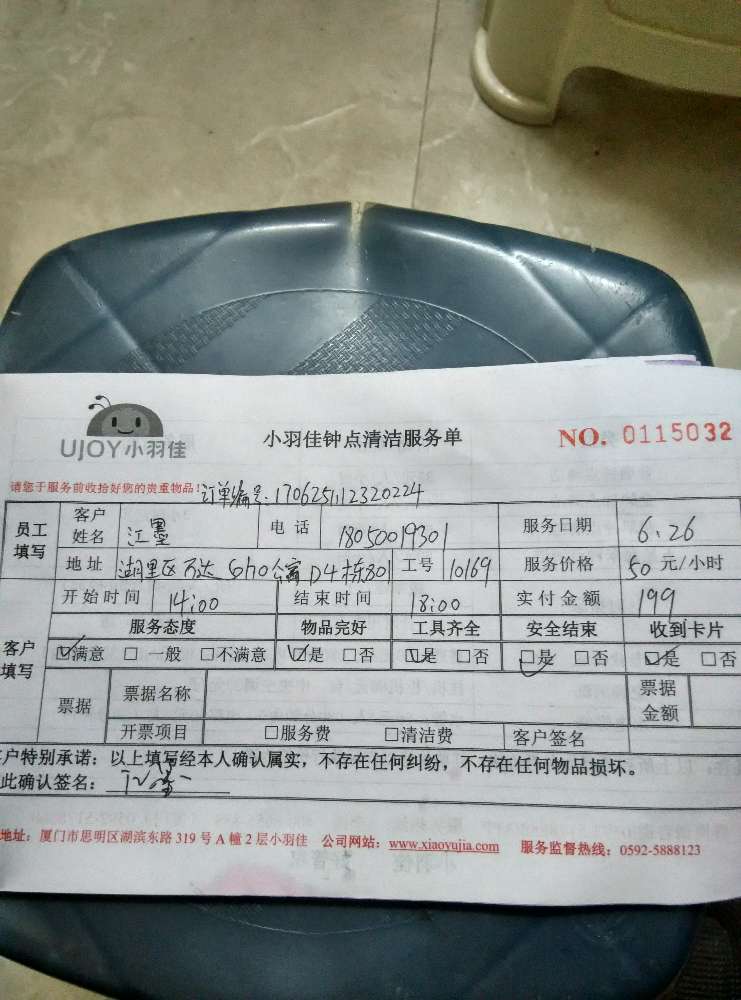 UJOY小羽佳
小羽佳钟点清洁服务单
NO. 0115032
请您于服务前收拾好您的贵重物品!
订单编号:170625112320224
员工填写 客户姓名 江墨 电话 18050019301 服务日期 6.26
地址 湖里区万达Soho公寓D4栋801 工号 10169 服务价格 50元/小时
客户填写 开始时间 14:00 结束时间 18:00 实付金额 199
服务态度 物品完好 工具齐全 安全结束 收到卡片
☑满意 □一般 □不满意 ☑是 □否 ☑是 □否 ☑是 □否 ☑是 □否
票据 票据名称 票据金额
开票项目 □服务费 □清洁费 客户签名
客户特别承诺:以上填写经本人确认属实,不存在任何纠纷,不存在任何物品损坏。
此确认签名:
地址:厦门市思明区湖滨东路319号A幢2层小羽佳 公司网站:www.xiaoyujia.com 服务监督热线:0592-5888123